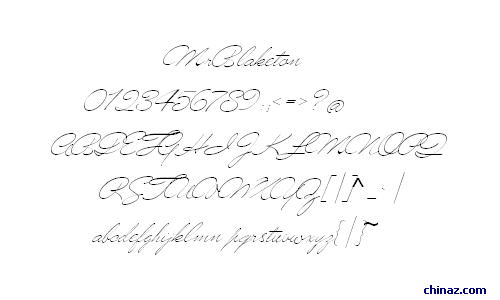 MrBlaketon
0123456789:;<=>?@
ABCDEFGHIJKLMNOPQ
RSTUVWXYZ[\]^_.|
abcdefghijklmn pqrstuvwxyz{|}~
chinaz.com